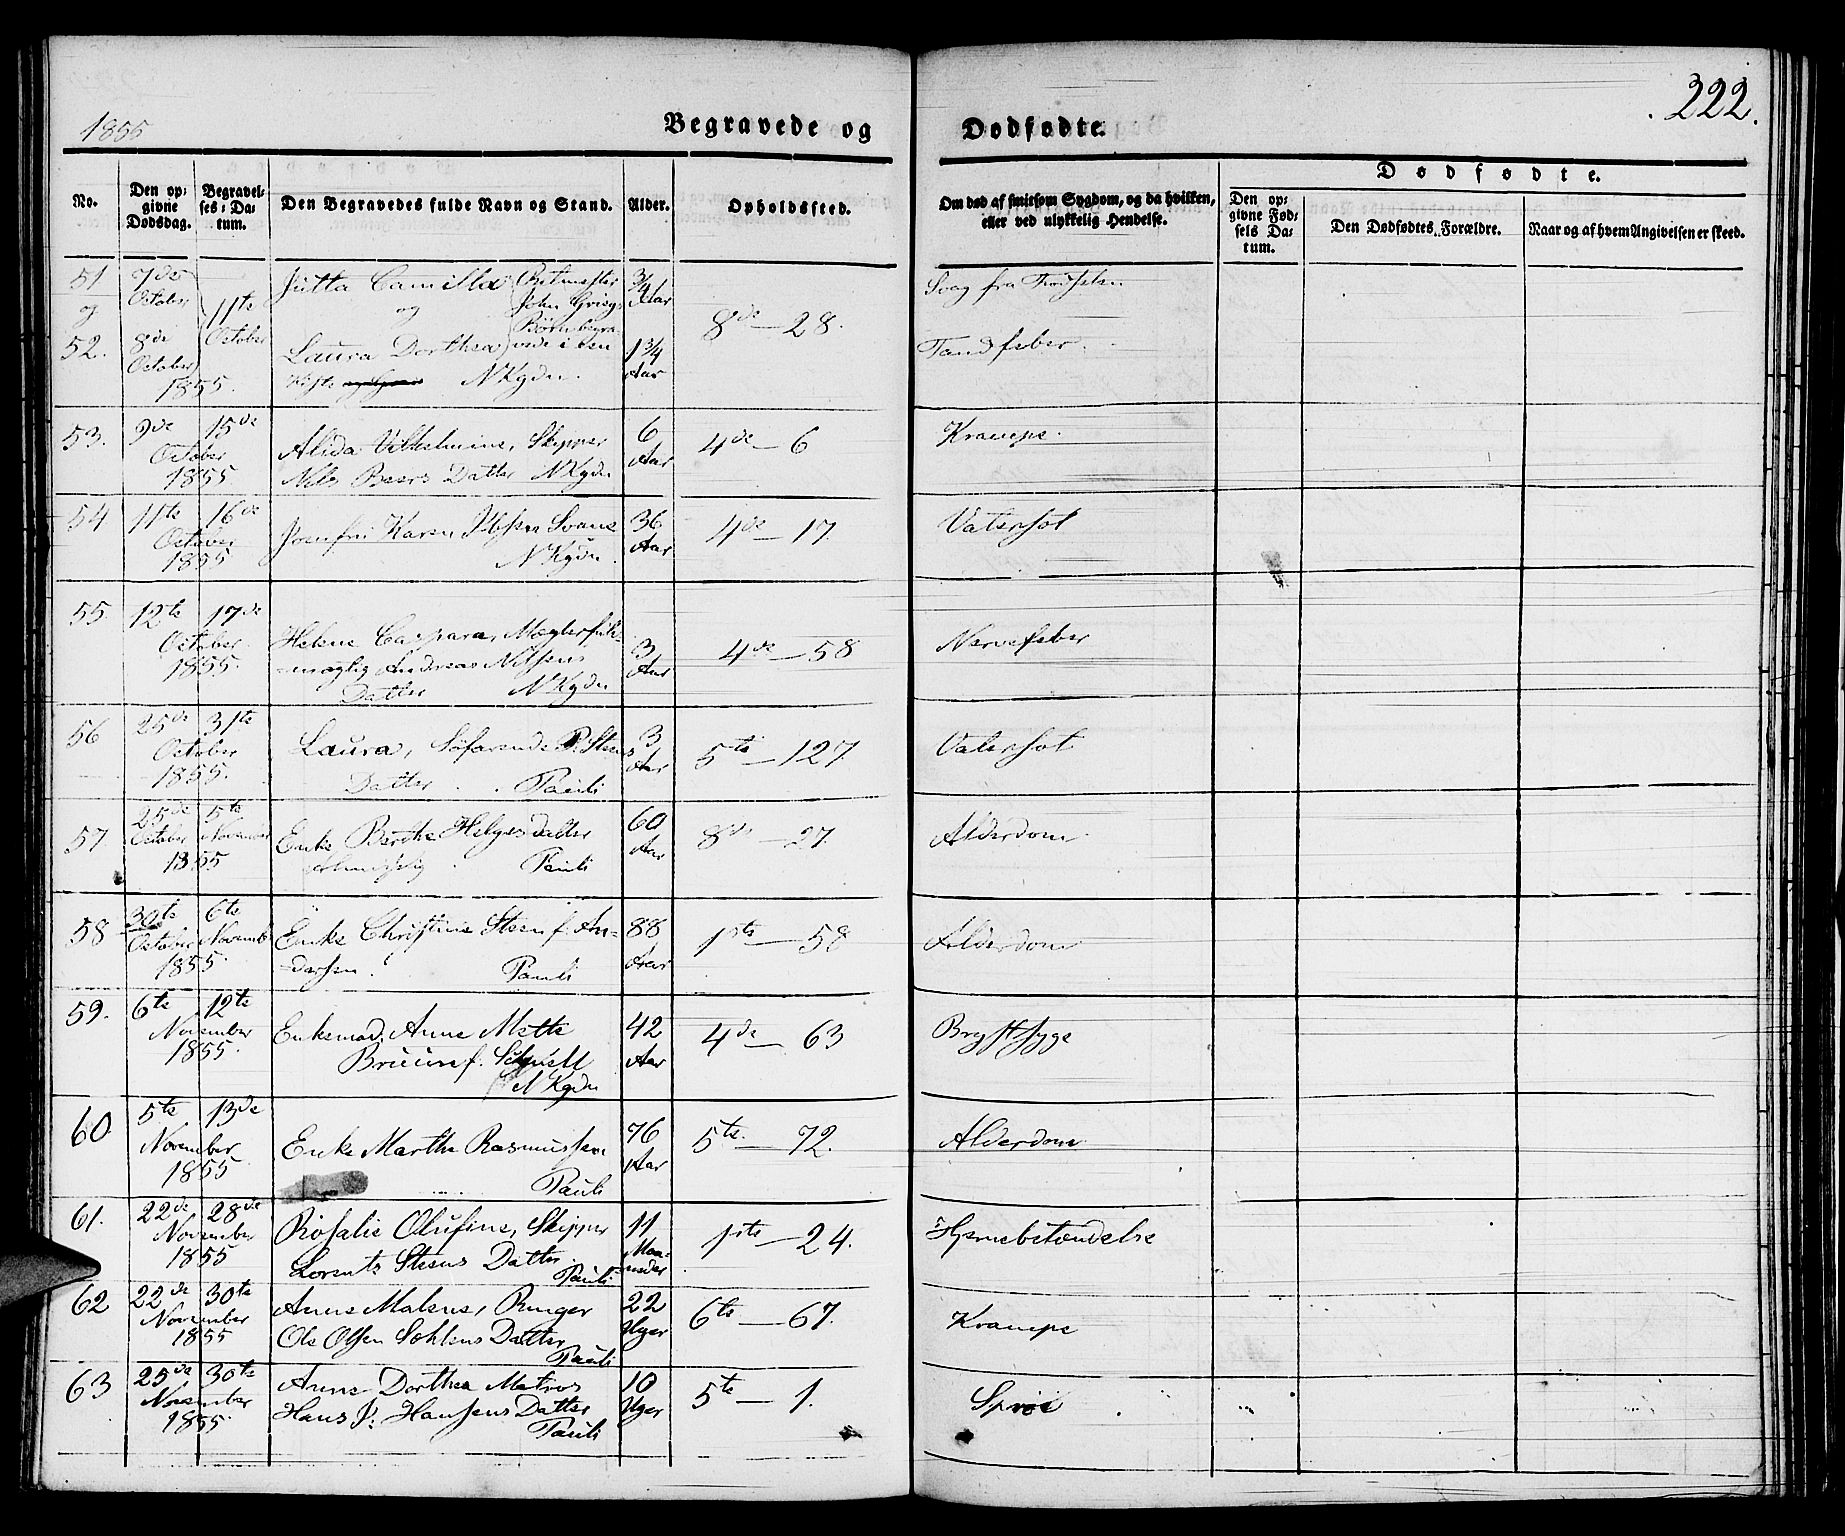 222.
1855
Begravede og Dødfødte.
No.
Den opgivne Dødsdag.
Begravelses-Datum.
Den Begravedes fulde Navn og Stand.
Alder.
Opholdssted.
Om død af smitsom Sygdom, og da hvilken, eller ved ulykkelig Hendelse.
Dødfødte.
Den opgivne Fødsels Datum.
Den Dødfødtes Forældre.
Naar og af hvem Angivelsen er skeed.
51 7de October
og 11te October
52. 8de October 1855.
Jutta Camilla
og
Laura Dorthea
John Griegs
Kiste NKgdn.
3/4 Aar
1 3/4 Aar
8de — 28.
Svag fra Fødselen
Tandfeber.
53. 9de 15de October 1855
Alida Vilhelmine, Skipper
Nils Beers Datter NKgdn
6 Aar
4de — 6
Krampe.
54 11te 16de October 1855
Jomfru Karen Svane
NKgdn.
36 Aar
4de — 17.
Vatersot
55. 12te 17de October 1855.
Helene Caspara, Mæglerfuld-
-mægtig Andreas Nilsens
Datter NKgdn
3 Aar
4de — 58
Nervefeber
56 25de 31te October 1855.
Laura, Søfarende P. Steens
Datter . . Pauli
3 Aar
5te — 127.
Vatersot
57 25de October 5te November 1855
Enke Berthe Helgesdatter
Pauli
60 Aar
8de — 27.
Alderdom
58 30te October 6te Novemb 1855.
Enke Christine Steen f. An-
-dersen. Pauli
88 Aar
1ste — 58
Alderdom
59. 6te 12te November 1855.
Enkemad. Anne Mette
Bruun f.
NKgdn
42 Aar
4de — 63
Brystsyge
60 5te 13de November 1855
Enke Marthe Rasmussen
Pauli
76 Aar
5te. — 72.
Alderdom
61. 22de 28de November 1855
Rosalie Olufine, Skipper
Lorentz Steens Datter
Pauli
11 Maaneder
1ste — 24.
Hjernebetændelse
62 22de 30te November 1855
Anne Malene, Ringer
Ole Olsen Sohlens Datter
Pauli
22 Uger
6te — 67.
Krampe
63 25de 30te November 1855.
Anne Dorthea Matros
Hans J. Hansens Datter
Pauli
10 Uger
5te — 1.